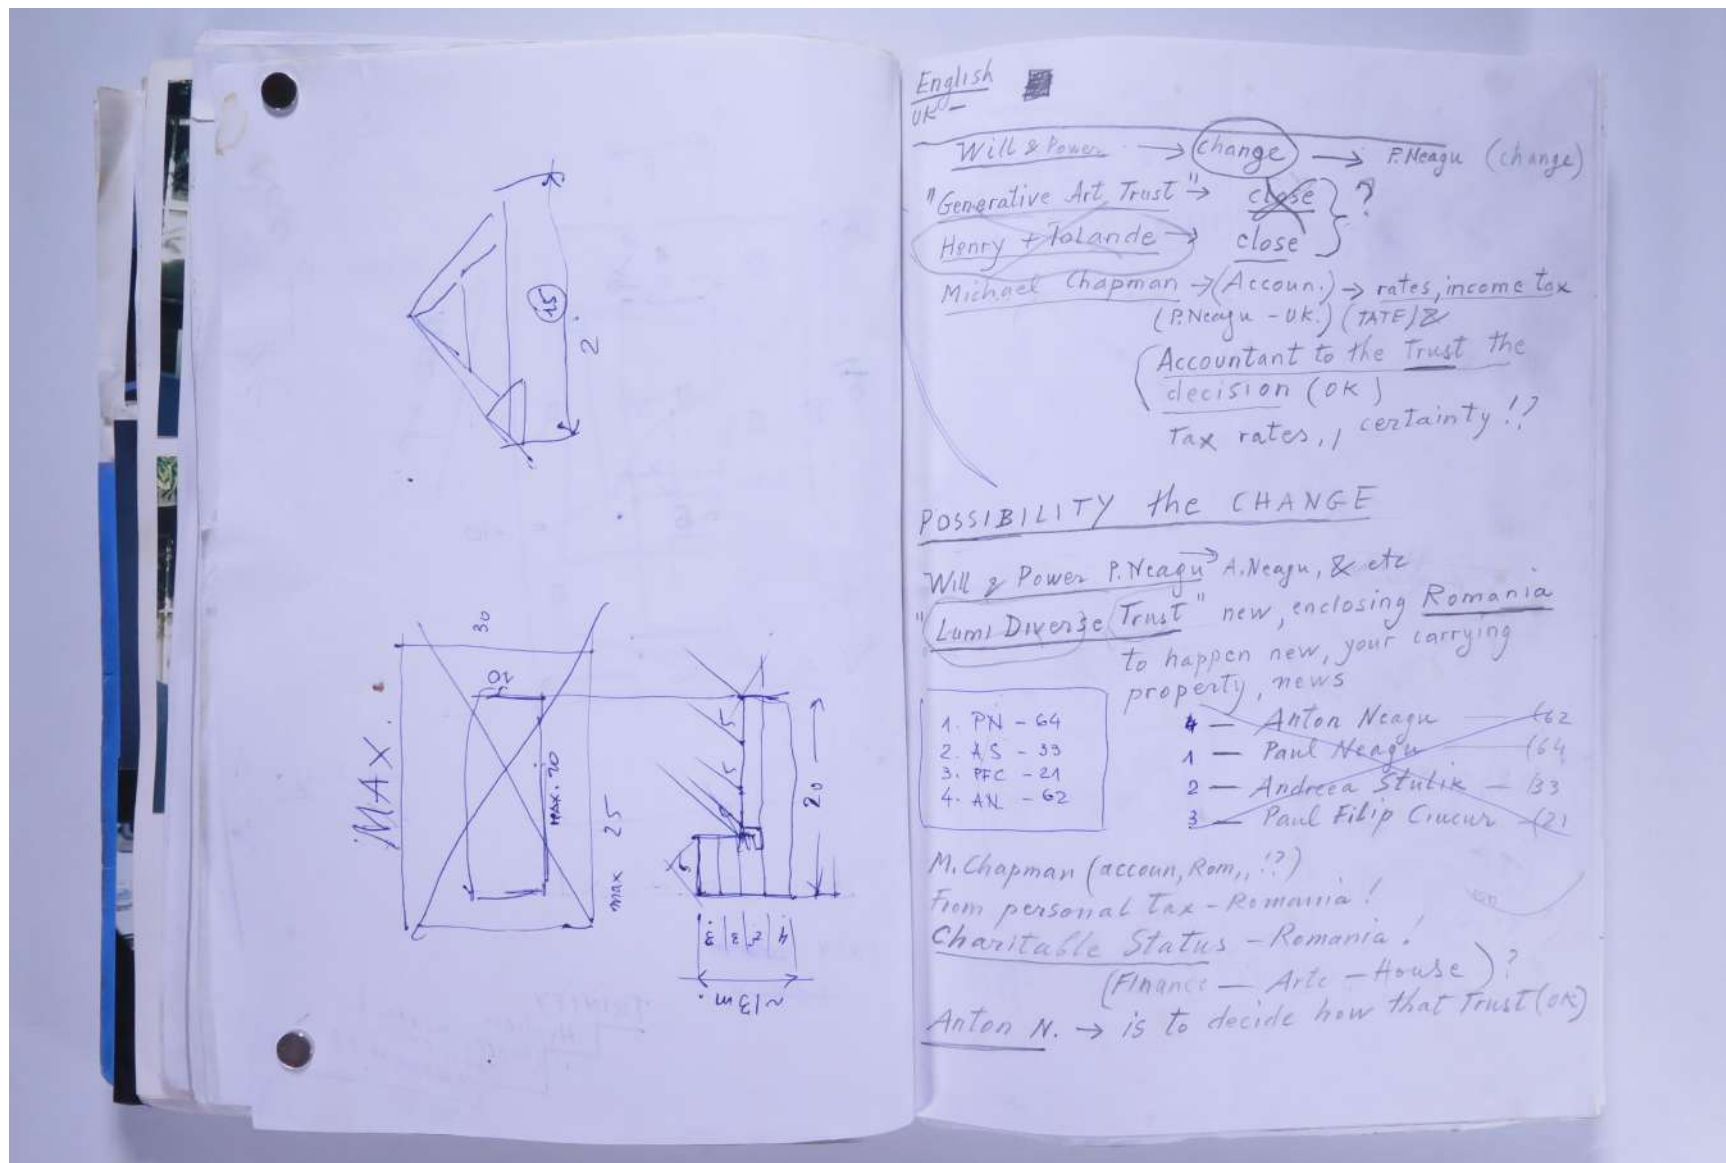 15
2
MAX.
30
10
MAX. 20
max 25
5
5
5
20
3 3 2 4
~13m.
English
UK -
Will & Power → change → P. Neagu (change)
"Generative Art Trust" → close
?
Henry + Iolande → close
Michael Chapman → (Accoun.) → rates, income tax
(P. Neagu - UK.) (TATE) &
(Accountant to the Trust the
decision (OK)
Tax rates,, certainty!?
POSSIBILITY the CHANGE
Will & Power P. Neagu → A. Neagu, & etc
"Lumi Diverse Trust" new, enclosing Romania
to happen new, your carrying
property, news
1. PN - 64
2. AS - 33
3. PFC - 21
4. AN - 62
4 — Anton Neagu — (62
1 — Paul Neagu — (64
2 — Andreea Stulik — (33
3 — Paul Filip Ciucur — (21
M. Chapman (accoun, Rom,, !?)
From personal Tax - Romania!
Charitable Status - Romania!
(Finance — Arte — House)?
Anton N. → is to decide how that Trust (OK)